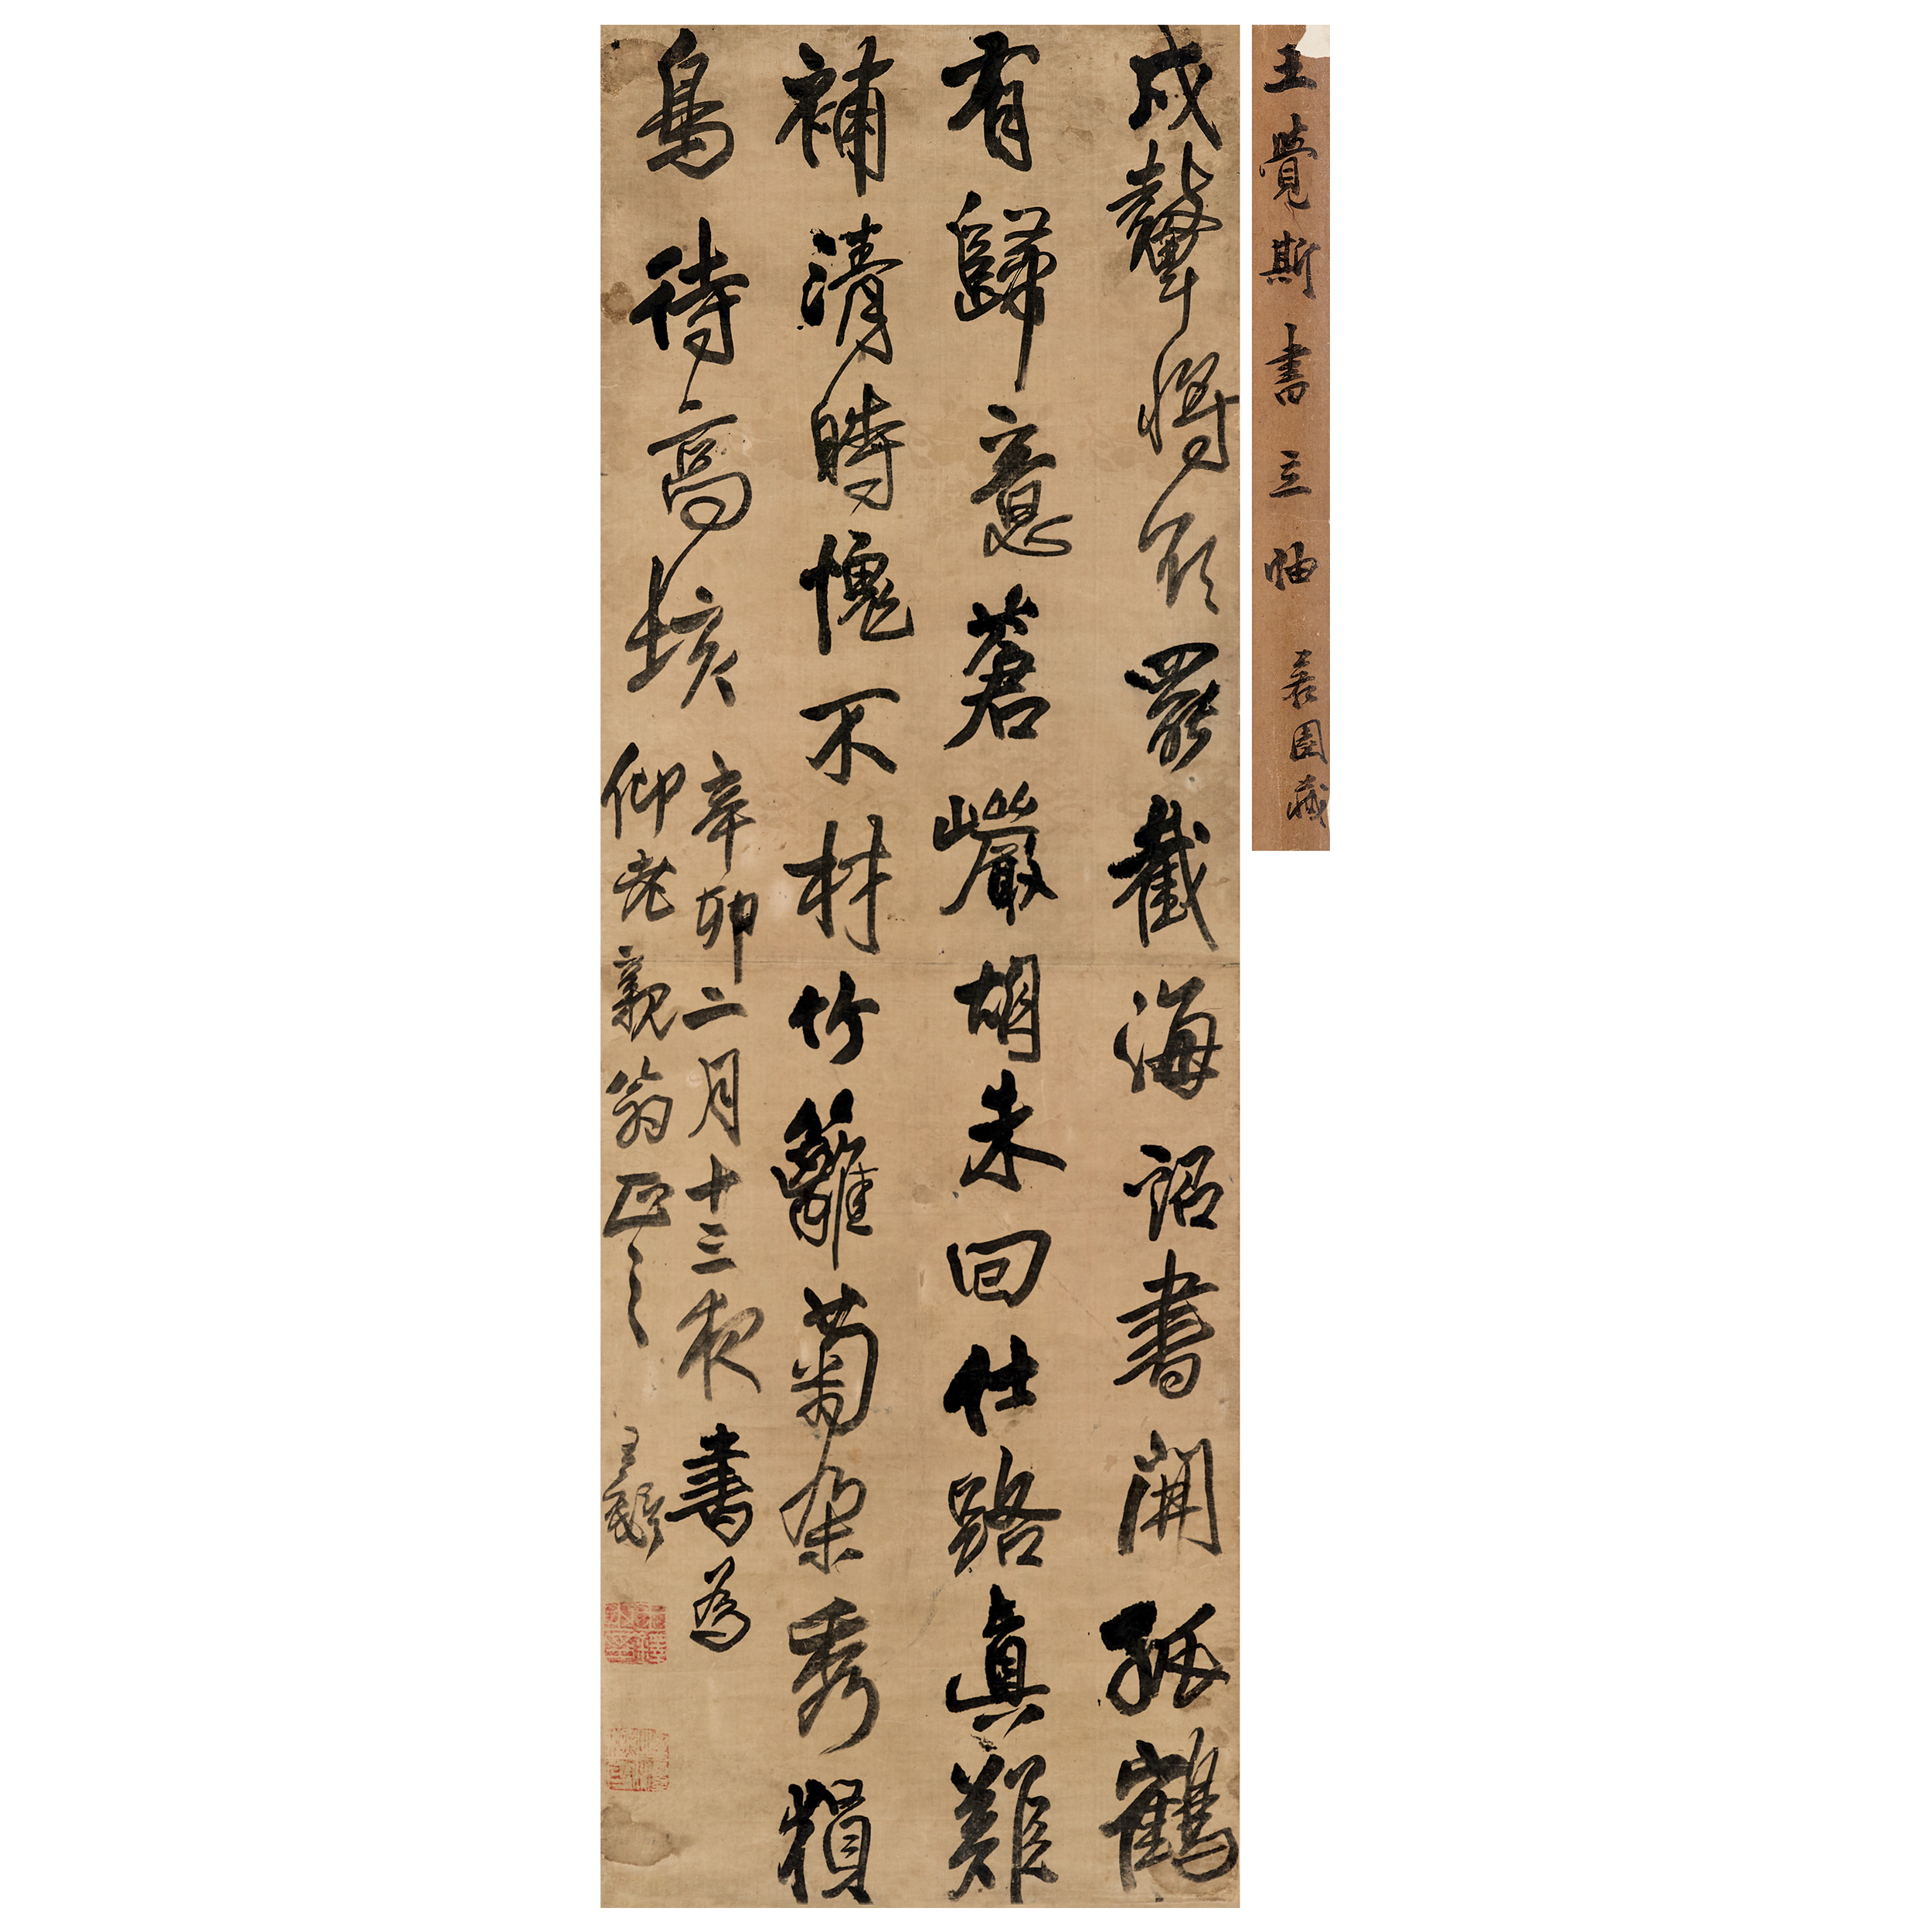 王覺斯書立軸 園藏
戍鼙將欲罷截海詔書開孤鶴
有歸意蒼巖胡未回仕路真難
補清時愧不材竹籬菊朵秀
鳥待高垓
辛卯二月十三夜書為
仰老親翁正之 王鐸